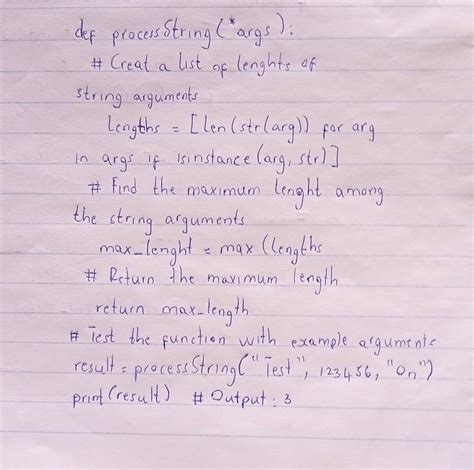 def processString(*args):
# Creat a list of lenghts of
string arguments
lengths = [len(str(arg)) for arg
in args if isinstance(arg, str)]
# Find the maximum lenght among
the string arguments
max_lenght = max (lengths
# Return the maximum length
return max_length
# Test the function with example arguments
result = processString("Test", 123456, "On")
print (result) # Output : 3